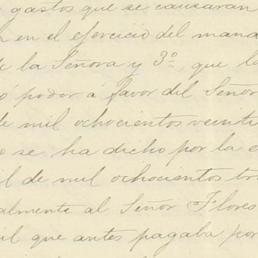 gastos que se causaran
en el ejercicio del mana
de la Señora y 3º, que la
ó poder á favor del Señor
de mil ochocientos veinti
o se, ha dicho por la e
il de mil ochocientos tr
almente al Señor Flores
uil que antes pagaba por